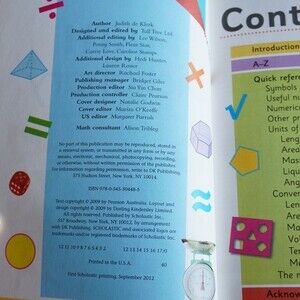 Author Judith de Klerk
Designed and edited by Tall Tree Ltd.
Additional editing by Lee Wilson,
Penny Smith, Fleur Star,
Carrie Love, Caroline Stamps
Additional design by Hedi Hunter,
Lauren Rosier
Art director Rachael Foster
Publishing manager Bridget Giles
Production editor Siu Yin Chan
Production controller Claire Pearson
Cover designer Natalie Godwin
Cover editor Matilda
US editor Margaret Parrish
Math consultant Alison Tribley
No part of this publication may be reproduced, stored in
a retrieval system, or transmitted in any form or by any
means, electronic, mechanical, photocopying, recording,
or otherwise, without written permission of the publisher.
For information regarding permission, write to DK Publishing,
375 Hudson Street, New York, NY 10014.
ISBN 978-0-545-
Text copyright © 2009 by Pearson Australia. Layout and design
copyright © 2009 by Dorling Kindersley Limited.
All rights reserved. Published by Scholastic Inc.,
557 Broadway, New York, NY 10012, by arrangement
with DK Publishing. SCHOLASTIC and associated logos are
trademarks and/or registered trademarks of Scholastic Inc.
12 11 10 9 8 7 6 5 4 3 2 12 13 14 15 16 17/0
Printed in the U.S.A. 40
First Scholastic printing, September 2012
Cont
Introduction
A–Z
Quick refere
Symbols
Useful
Numeric
Other pr
Units of
Leng
Area
Mass
Liqui
Leng
Area
Volu
Mass
Liqui
Angl
The me
Acknow